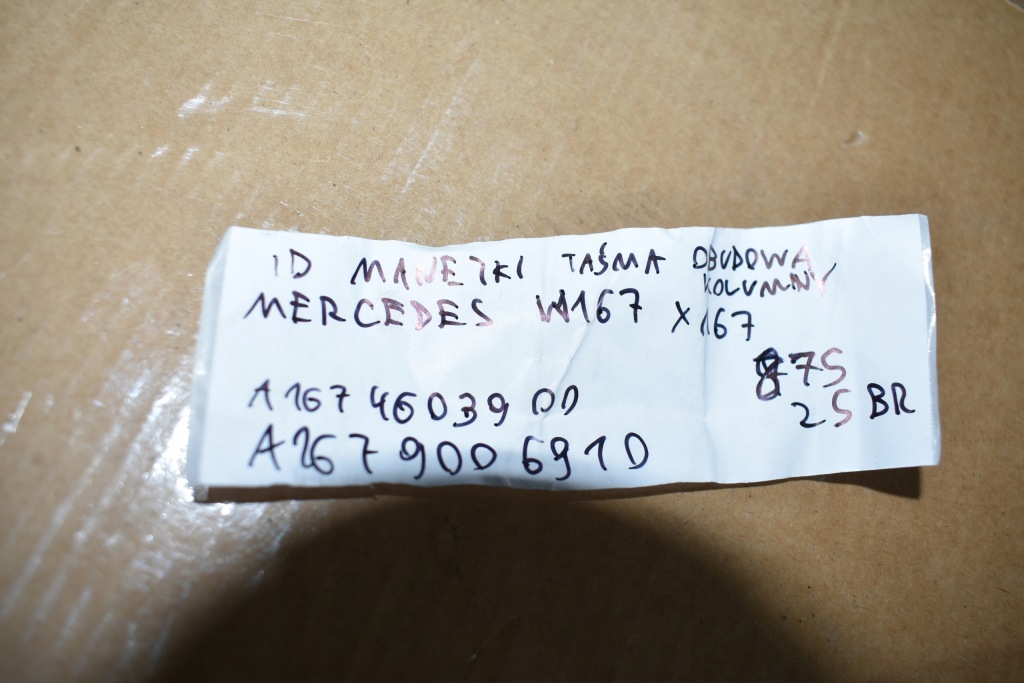 ID MANETKI TAŚMA OBUDOWA
KOLUMNY
MERCEDES W167 X167
875
25 BR
A167 46039 00
A167 900 6910